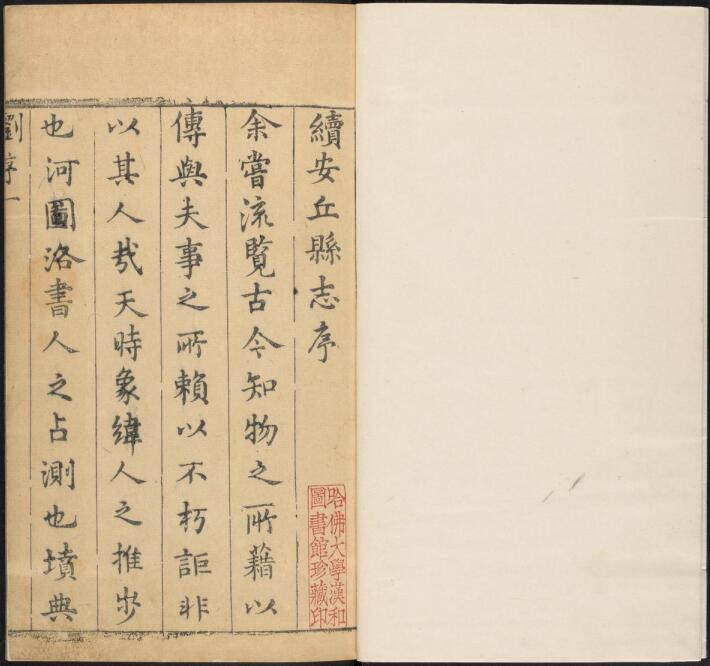 續安丘縣志序
余嘗流覽古今知物之所藉以
傳與夫事之所賴以不朽詎非
以其人㢤天時象緯人之推步
也河圖洛書人之占測也墳典
劉序一
哈佛大學漢和
圖書館珍藏印